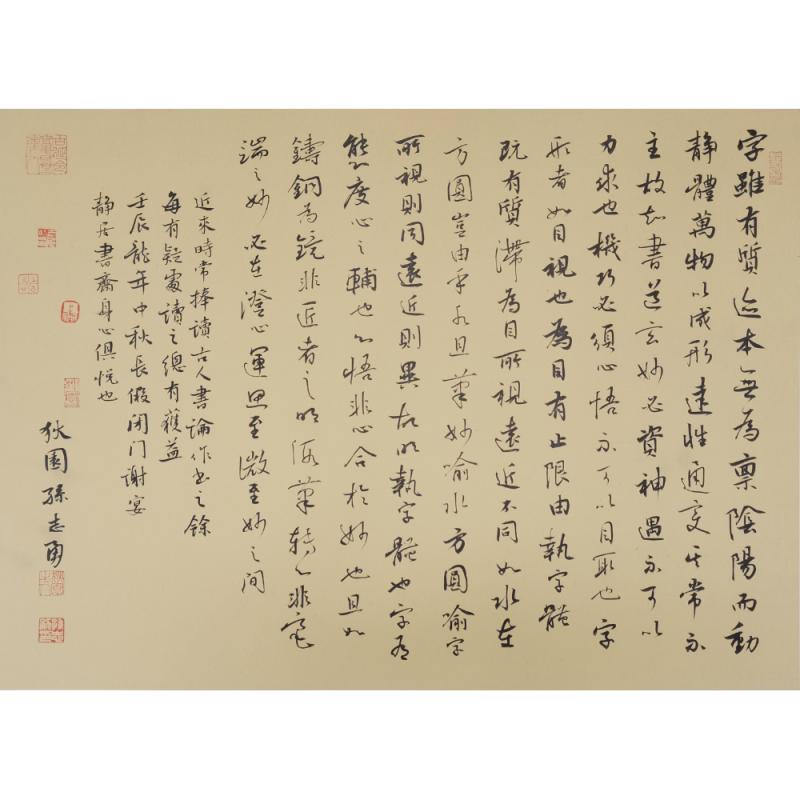 字雖有質迹本無為禀陰陽而動
静體萬物以成形達性通變其常不
主故知書道玄妙必資神遇不可以
力求也機巧必須心悟不可以目取也字
形者如目視也為目有止限由執字體
既有質滯為目所視遠近不同如水在
方圓豈由乎水且筆妙喻水方圓喻字
所視則同遠近則異故明執字體也字有
態度心之輔也心悟非心合於妙也且如
鑄銅為鏡非匠者之明假筆轉心非毫
端之妙必在澄心運思至微至妙之間
近來時常捧讀古人書論作書之餘
每有疑處讀之總有獲益
壬辰龍年中秋長假闭门謝宴
静居書齋身心俱悦也
狄園孫志勇